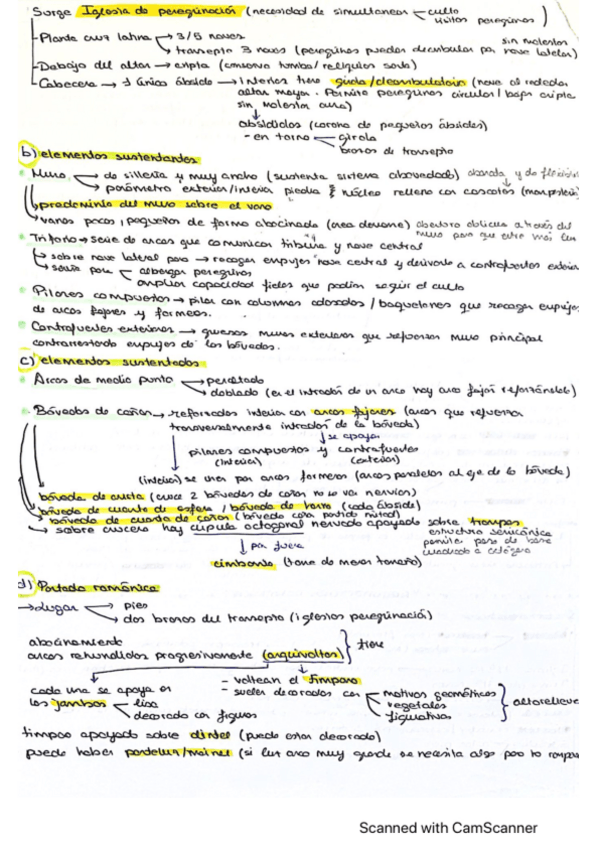 Surge Iglesia de peregrinación (necesidad de simultanear culto
visitas peregrinos)
- Planta cruz latina → 3/5 naves
sin molestar
→ transepto 3 naves (peregrinos pueden deambular por nave laterales)
- Debajo del altar → cripta (conserva tumba/reliquias santo)
- Cabecera → 1 único ábside → interior tiene girola/deambulatorio (nave al rededor
altar mayor. Permite peregrinos circular/bajar cripta
sin molestar cura)
absidiolos (corona de pequeños ábsides)
- en torno girola
brazos de transepto
b) elementos sustentantes
Muro de sillería y muy ancho (sustenta sistema abovedado)
parámetro exterior/interior piedra y núcleo relleno con cascotes
predominio del muro sobre el vano
vanos pocos, pequeños de forma abocinada (crea derrame) abertura oblicua a través del
muro para que entre más luz
Triforio → serie de arcos que comunican tribuna y nave central
sobre nave lateral para → recoger empujes nave central y derivarlo a contrafuertes exterior
servía para albergar peregrinos
ampliar capacidad fieles que podían seguir el culto
Pilares compuestos → pilar con columnas adosadas/baquetones que recogen empujes
de arcos fajones y formeros.
Contrafuertes exteriores → gruesos muros exteriores que refuerzan muro principal
contrarrestando empujes de las bóvedas.
c) elementos sustentados
Arcos de medio punto peraltado
doblado (en el intradós de un arco hay arco fajón reforzándolo)
Bóvedas de cañón → reforzadas interior con arcos fajones (arcos que refuerzan
transversalmente intradós de la bóveda)
se apoyan
pilares compuestos y contrafuertes
(interior) (exterior)
(interior) se unen por arcos formeros (arcos paralelos al eje de la bóveda)
bóveda de arista (cruce 2 bóvedas de cañón no se ven nervios)
bóveda de cuarto de esfera / bóveda de horno (cada ábside)
bóveda de cuarto de cañón (bóveda cañón partida mitad)
sobre crucero hay cúpula octogonal nervada apoyada sobre trompas
estructura semicónica
permite paso de base
cuadrada a octógono
por fuera
cimborrio (torre de menor tamaño)
d) Portada románica
→ Lugar pies
dos brazos del transepto (iglesias peregrinación)
abocinamiento
arcos rehundidos progresivamente (arquivoltas) } tiene
cada una se apoya en
las jambas lisa
decorada con figuras
- voltean el tímpano
- suelen decorados con motivos geométricos
vegetales
figurativa
} altorelieve
tímpano apoyado sobre dintel (puede estar decorado)
puede haber parteluz/mainel (si es un arco muy grande se necesita algo para no romper
Scanned with CamScanner